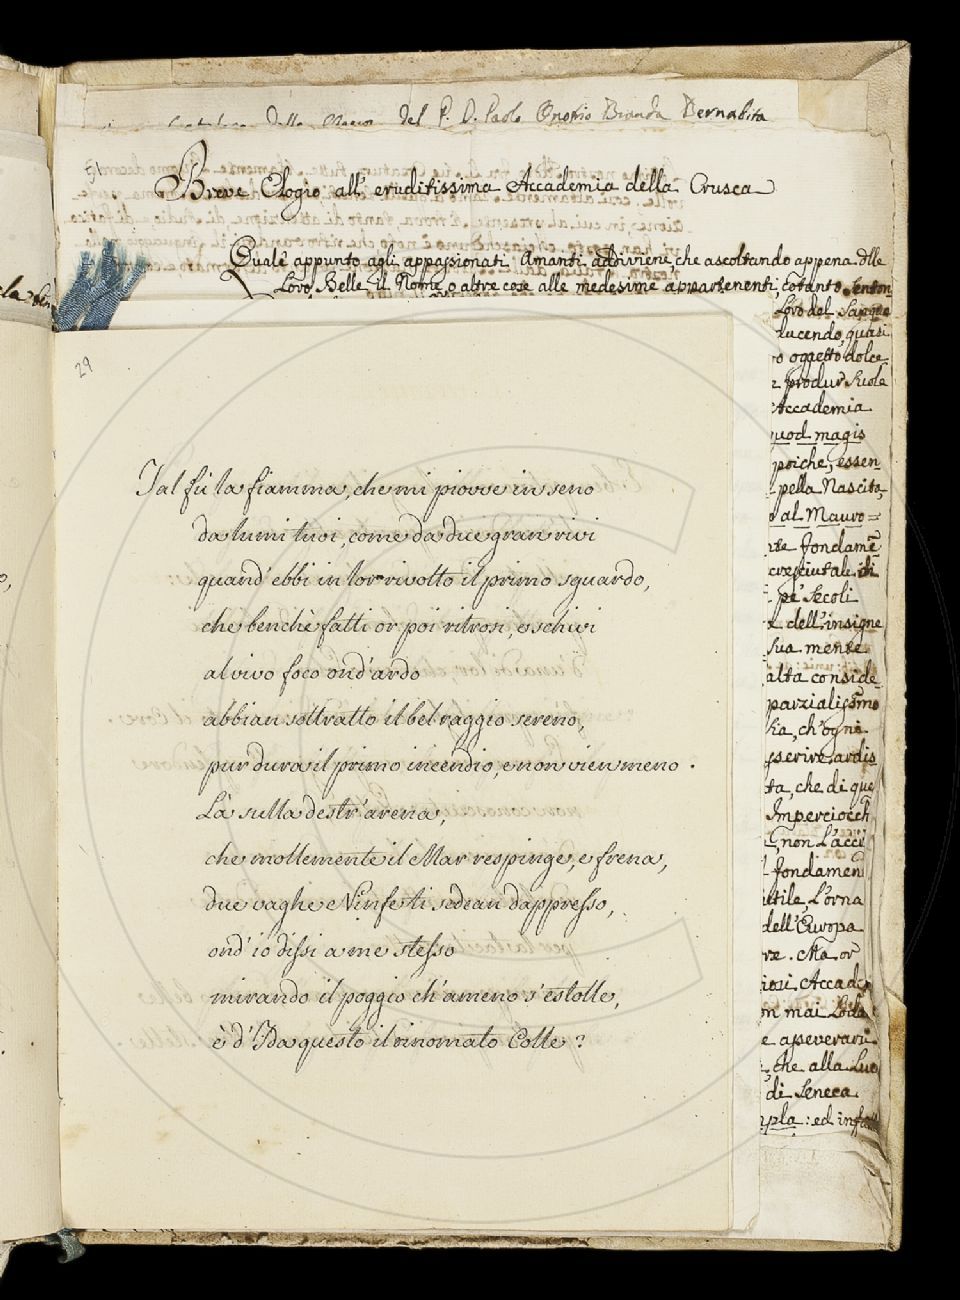 della del P. D. Paolo Onofrio Branda Bernabita
51
Breve Elogio all' eruditissima Accademia della Crusca
Quale appunto agli appassionati Amanti addiviene, che ascoltando appena dlle
Loro Belle il Nome, o altre cose alle medesime appartenenti, cotanto senton
Loro del Sangue
ducendo, quasi
oggetto dolce
produr suole
Accademia
quod magis
poiche, essen
pella Nascita,
o al Mauro=
fondamē
cresciutale di
pe' Secoli
dell'insigne
sua mente
alta conside
parzialissmo
ch'ogni
sserire ardis
ta, che di que
Imperciocch
non L'acci
fondamen
utile, L'orna
dell'Europa
Ma or
iosi Accade
on mai Loda
e apeverare
che alla Luc
di Seneca
mpla: ed infatt
29
Tal fù la fiamma, che mi piovve in seno
da lumi tuoi, come da due gran rivi
quand' ebbi in lor rivolto il primo sguardo,
che benchè fatti or poi ritrosi, e schivi
al vivo foco ond' ardo
abbian sottratto il bel raggio sereno,
pur dura il primo incendio, e non vien meno.
Là sulla destr' arena,
che mollemente il Mar respinge, e frena,
due vaghe Ninfe ti sedean dappresso,
ond' io dissi a me stesso
mirando il poggio ch' ameno s' estolle,
è d' Ida questo il rinomato Colle?